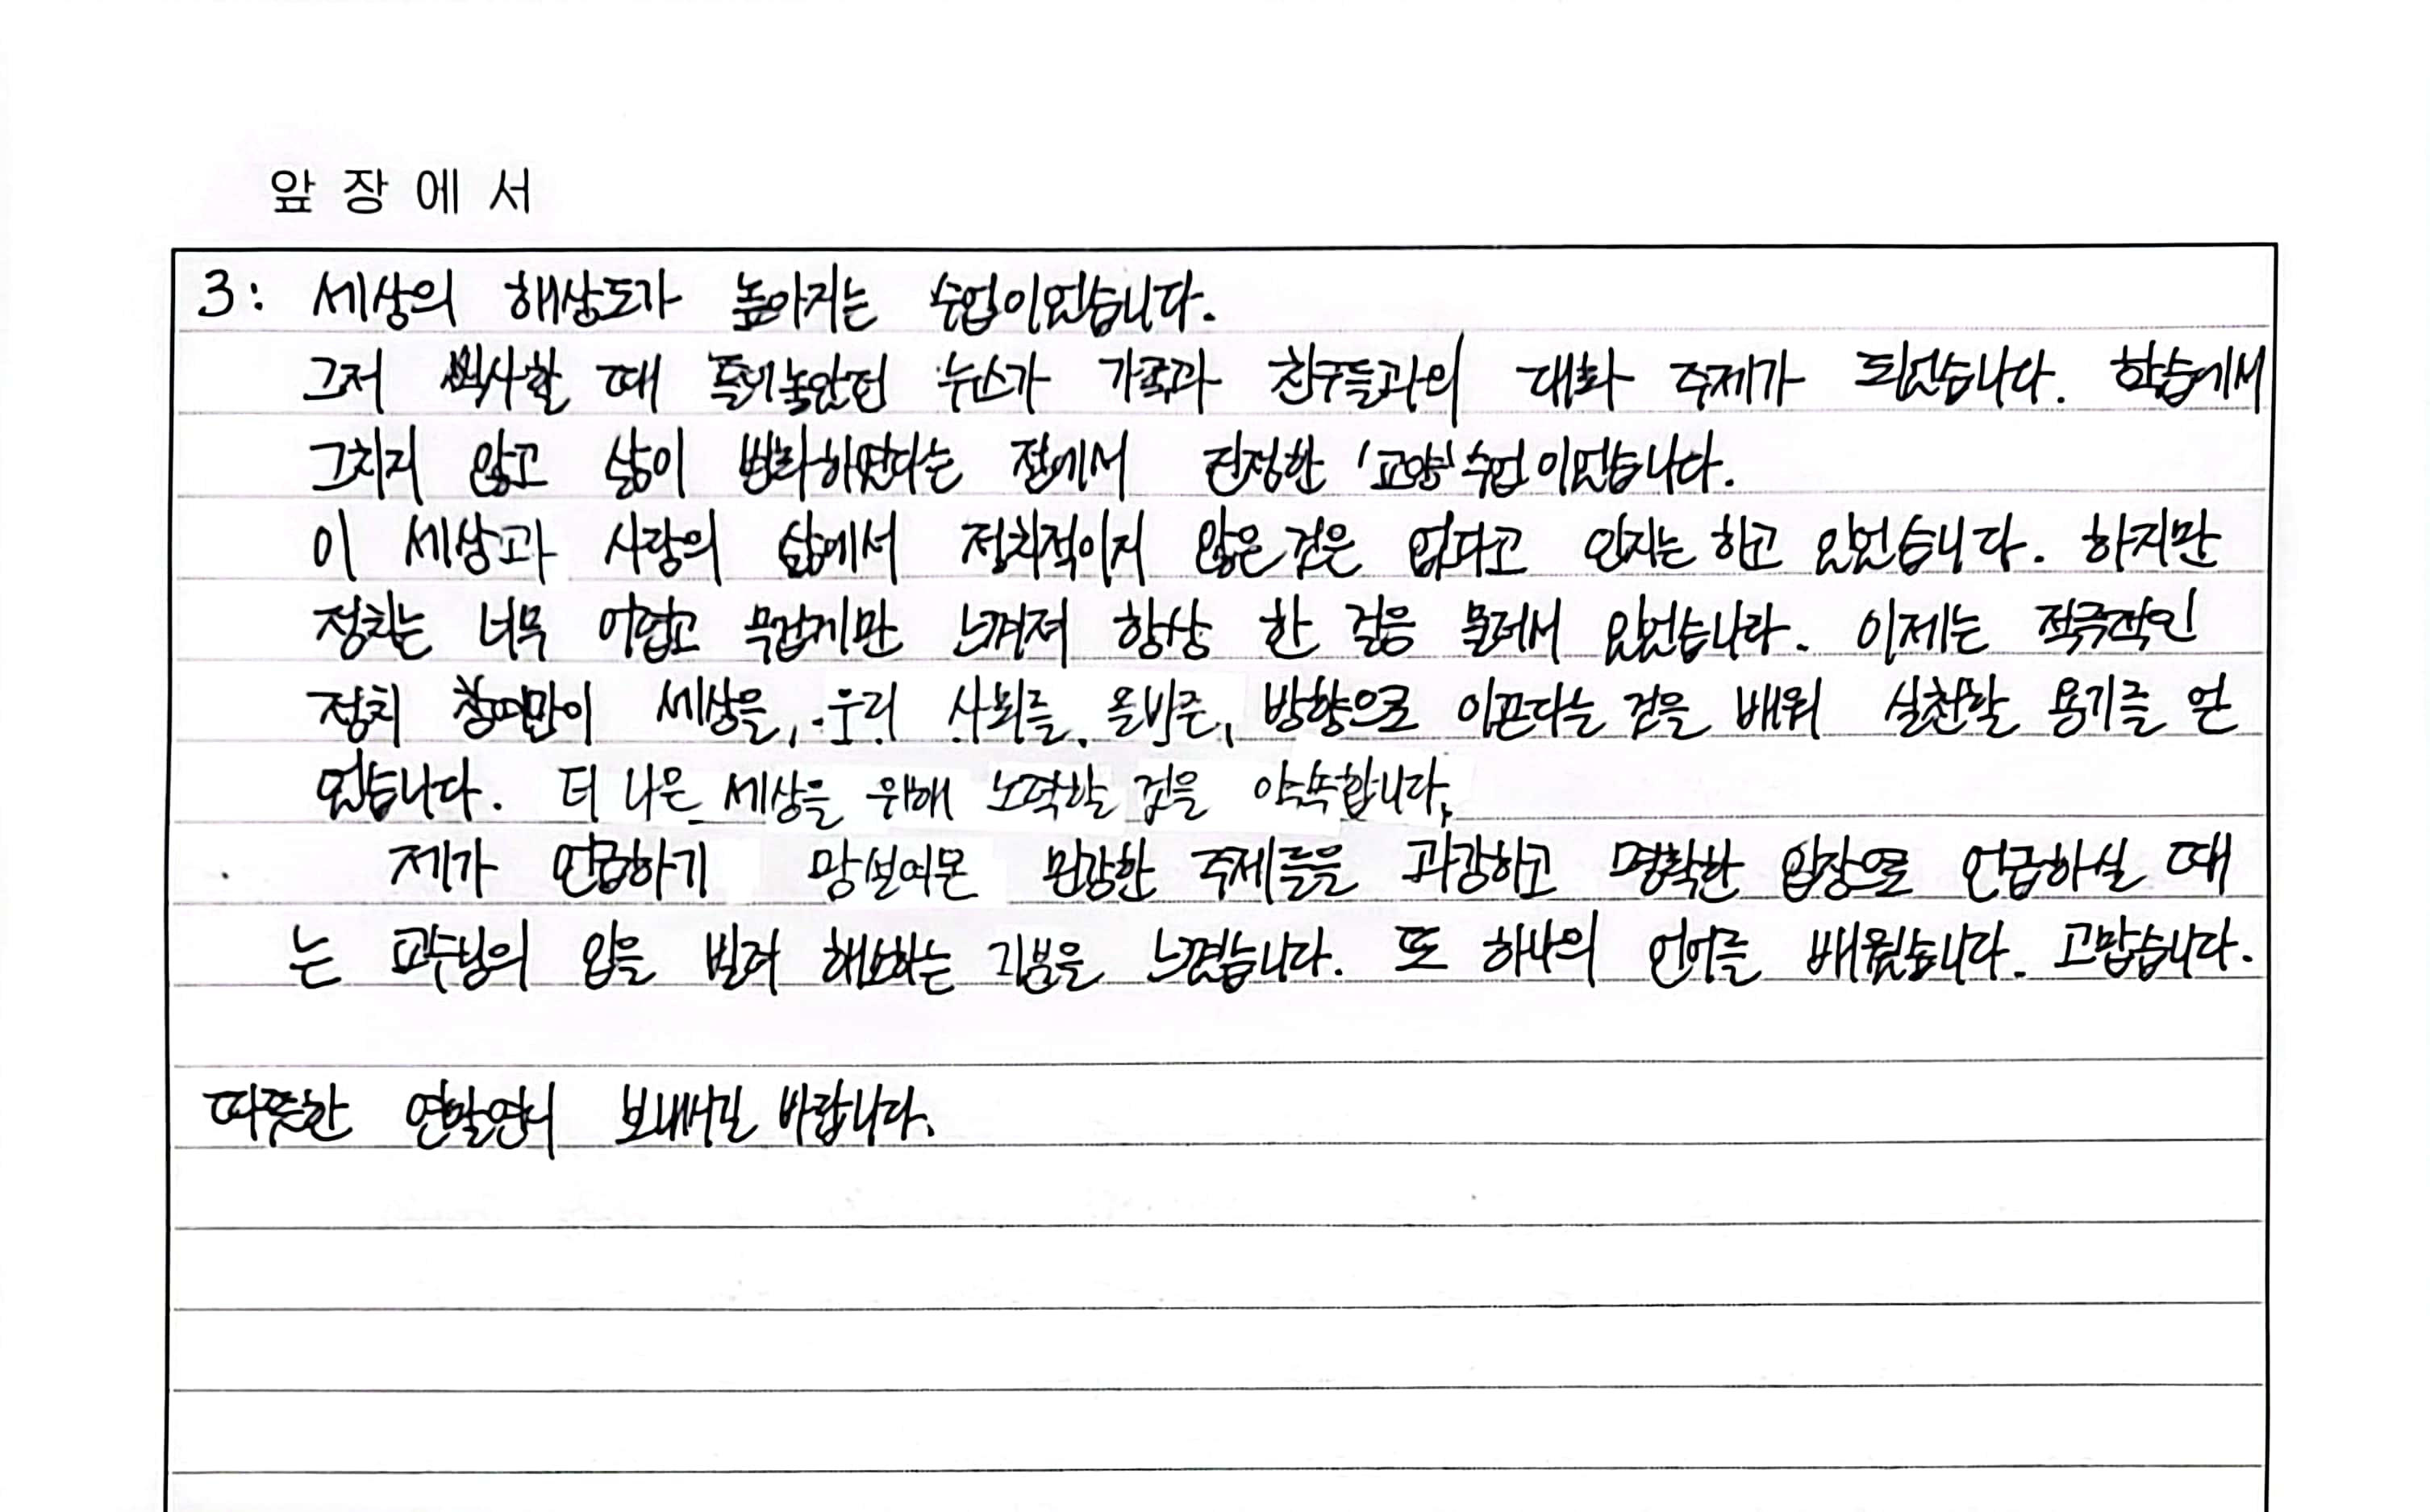 앞장에서
3: 세상의 해상도가 높아지는 수업이었습니다.
그저 식사할 때 틀어놓았던 뉴스가 가족과 친구들과의 대화 주제가 되었습니다. 학습에서
그치지 않고 삶이 변화하였다는 점에서 진정한 '교양' 수업이었습니다.
이 세상과 사람의 삶에서 정치적이지 않은 것은 없다고 인지는 하고 있었습니다. 하지만
정치는 너무 어렵고 무겁게만 느껴져 항상 한 걸음 물러서 있었습니다. 이제는 적극적인
정치 참여만이 세상을, 우리 사회를 올바른 방향으로 이끈다는 것을 배워 실천할 용기를 얻
었습니다. 더 나은 세상을 위해 노력할 것을 약속합니다.
제가 언급하기 망설여온 민감한 주제들을 과감하고 명확한 입장으로 언급하실 때
는 교수님의 입을 빌려 해소하는 기분을 느꼈습니다. 또 하나의 언어를 배웠습니다. 고맙습니다.
따뜻한 연말연시 보내시길 바랍니다.